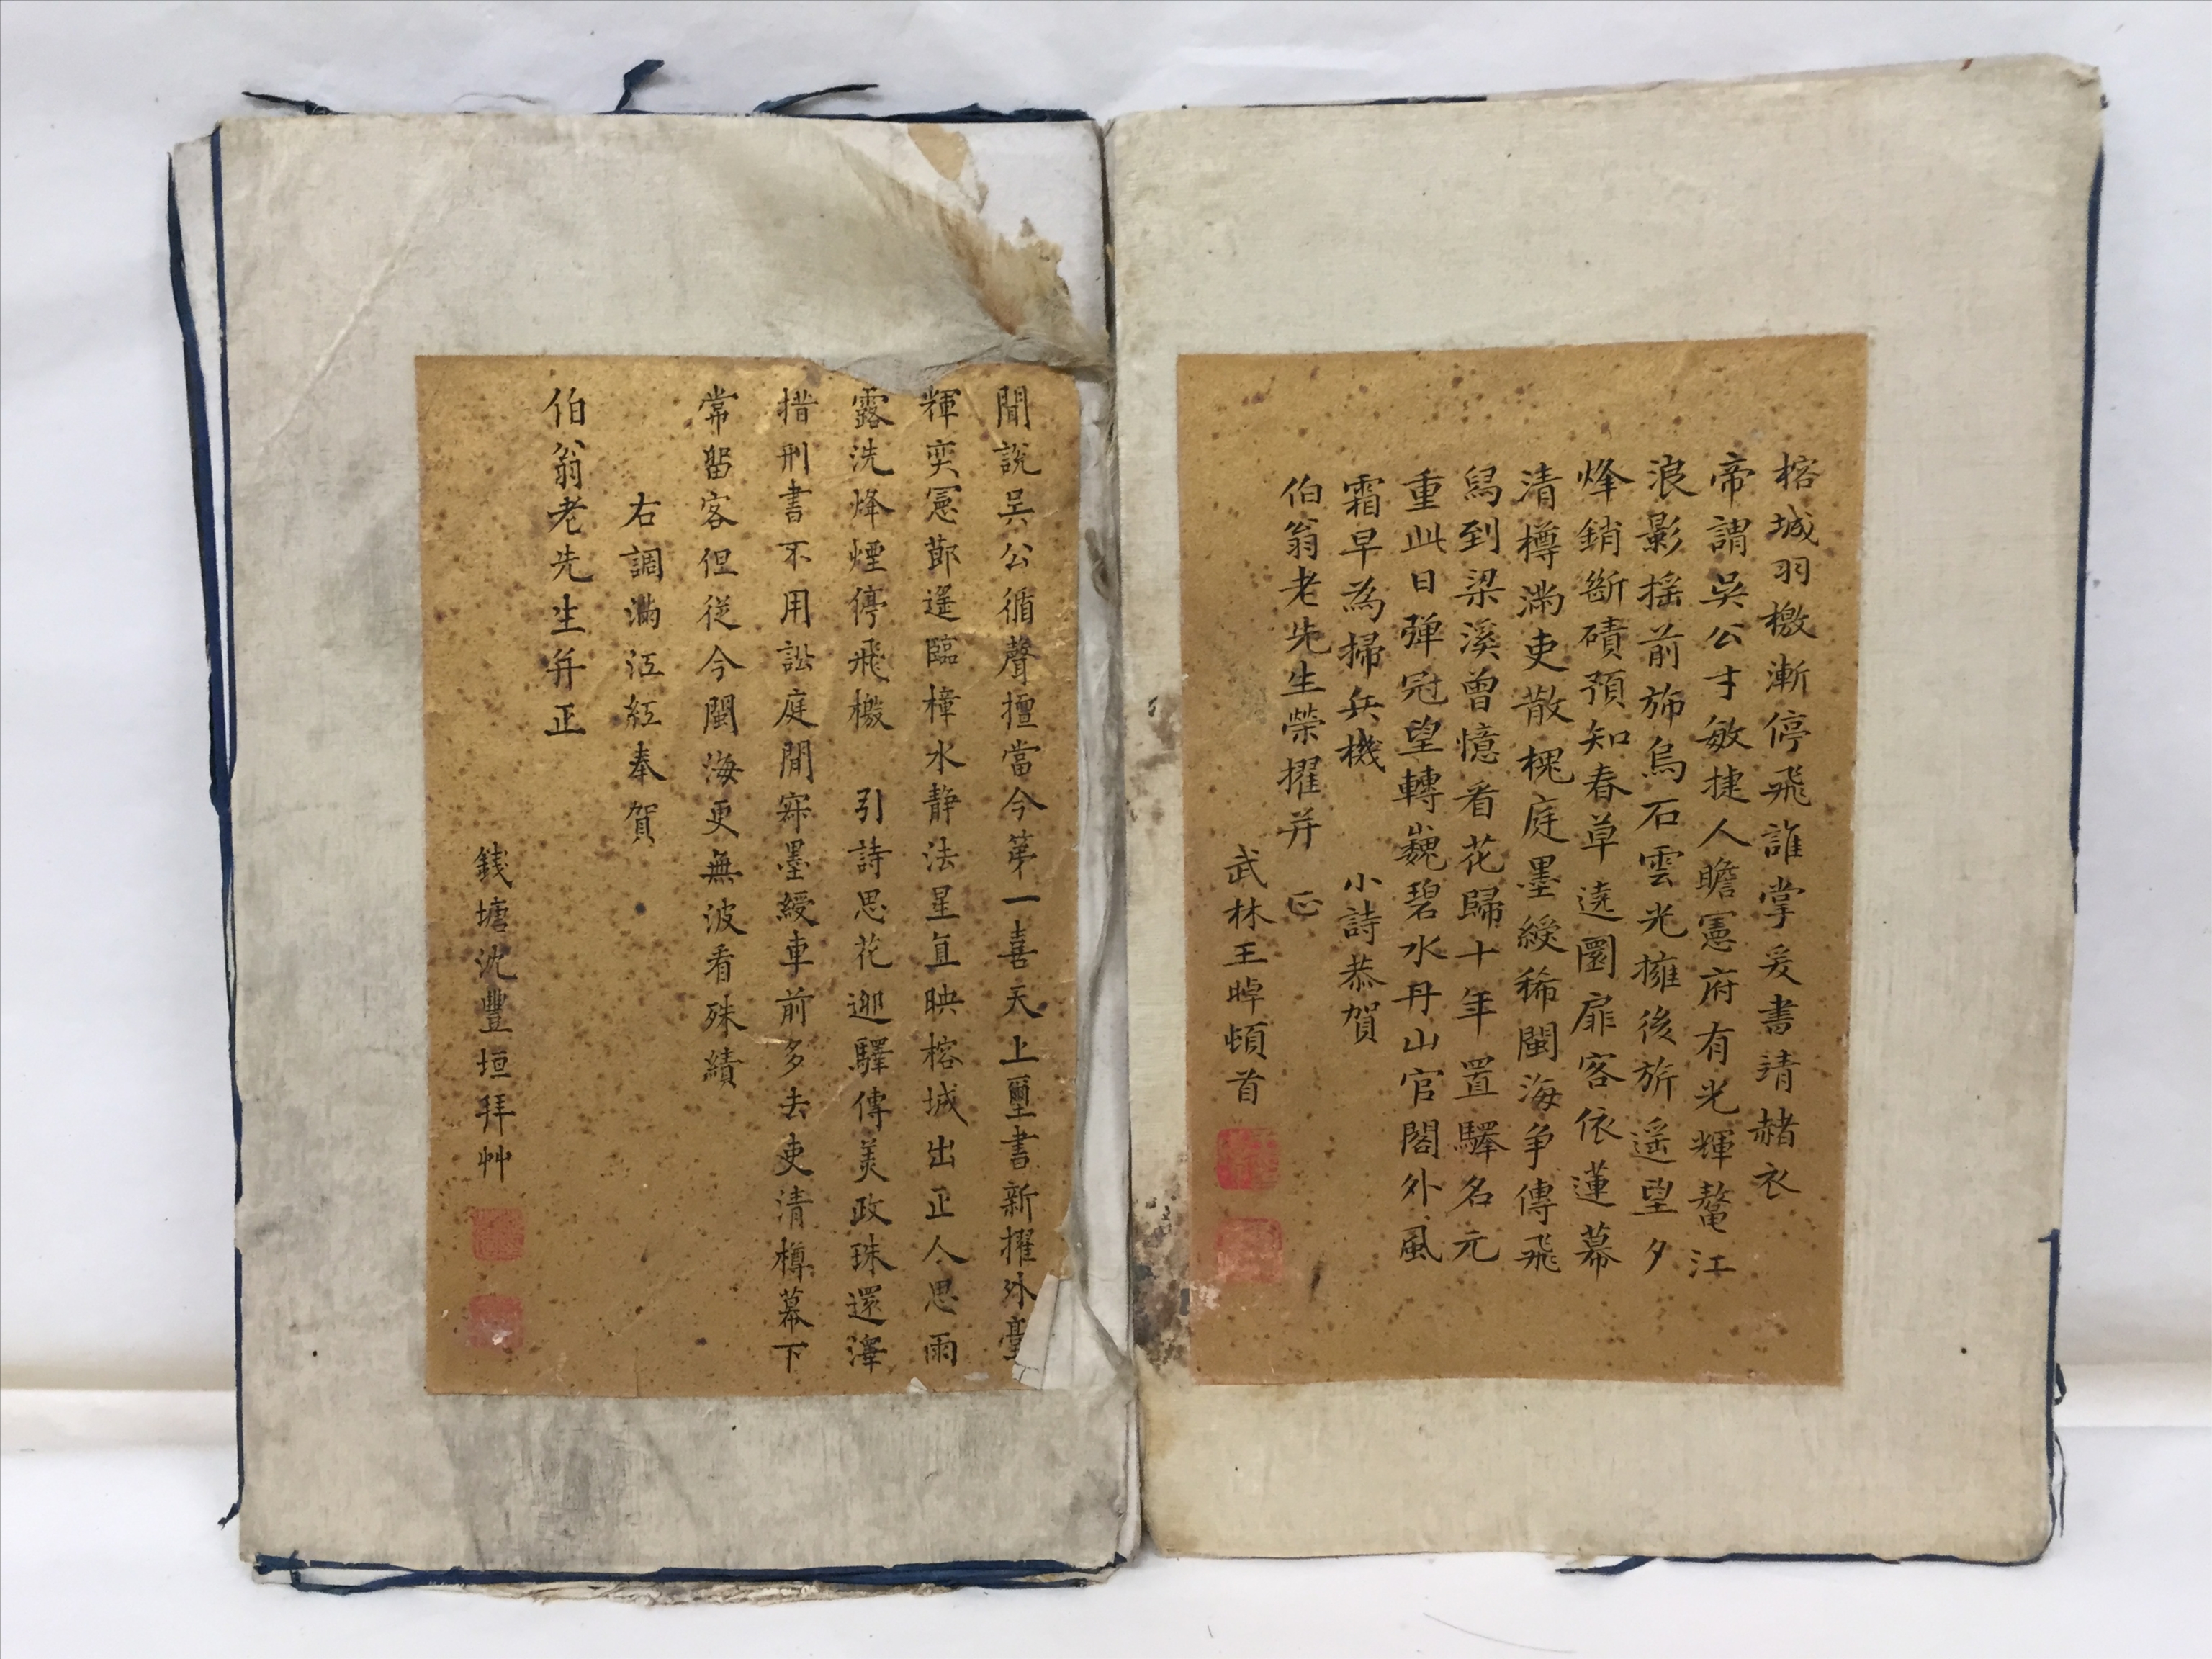 榕城羽檄漸停飛誰掌爰書靖赭衣
帝謂吳公才敏捷人瞻憲府有光輝鼇江
浪影摇前斾烏石雲光擁後旂遥望夕
烽銷斷磧預知春草遶圜扉客依蓮幕
清樽滿吏散槐庭墨綬稀閩海争傳飛
舄到梁溪曾憶看花歸十年置驛名元
重此日弹冠望轉巍碧水丹山官閣外風
霜早為掃兵機　小詩恭賀
伯翁老先生榮擢并　正
武林王晫頓首
聞説吴公循聲擅當今第一喜天上璽書新擢外臺
輝奕憲鄁遥臨樟水静法星直映榕城出正人思雨
露洗烽煙停飛檄　引詩思花迎驛傳美政珠還澤
措刑書不用訟庭閒寂墨綬車前多去吏清樽幕下
常留客但從今閩海更無波看殊績
右調滿江紅奉賀
伯翁老先生并正
錢塘沈豐垣拜艸